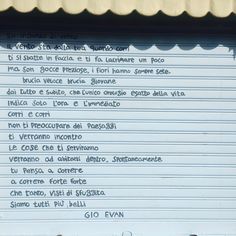 il vento sta dalla tua quando corri
ti si sbatte in faccia e ti fa lacrimare un poco
ma son gocce preziose, i fiori hanno sempre sete.
brucia veloce brucia giovane
dai tutto e subito, che l'unico orologio esatto della vita
indica solo l'ora e l'immediato
corri e corri
non ti preoccupare dei paesaggi
ti verranno incontro
le cose che ti serviranno
verranno ad abitarti dentro, spontaneamente.
tu pensa a correre
a correre forte forte
che tanto, visti di sfuggita
siamo tutti più belli
GIO EVAN